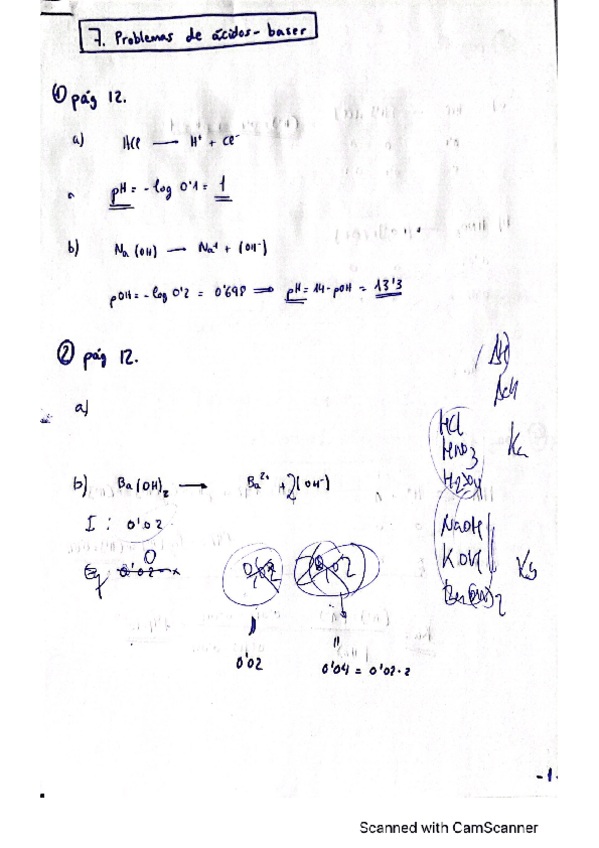 7. Problemas de ácidos-bases
① pág 12.
a) HCl → H⁺ + Cl⁻
pH = - log 0'1 = 1
b) Na(OH) → Na⁺ + (OH⁻)
pOH = - log 0'2 = 0'698 ⟹ pH = 14 - pOH = 13'3
② pág 12.
a)
b) Ba(OH)₂ → Ba²⁺ + 2(OH⁻)
I : 0'02
Eq 0
0'02 0'04 = 0'02·2
HCl
HNO₃ Ka
H₂SO₄
NaOH
KOH Kb
Ba(OH)₂
-1-
Scanned with CamScanner